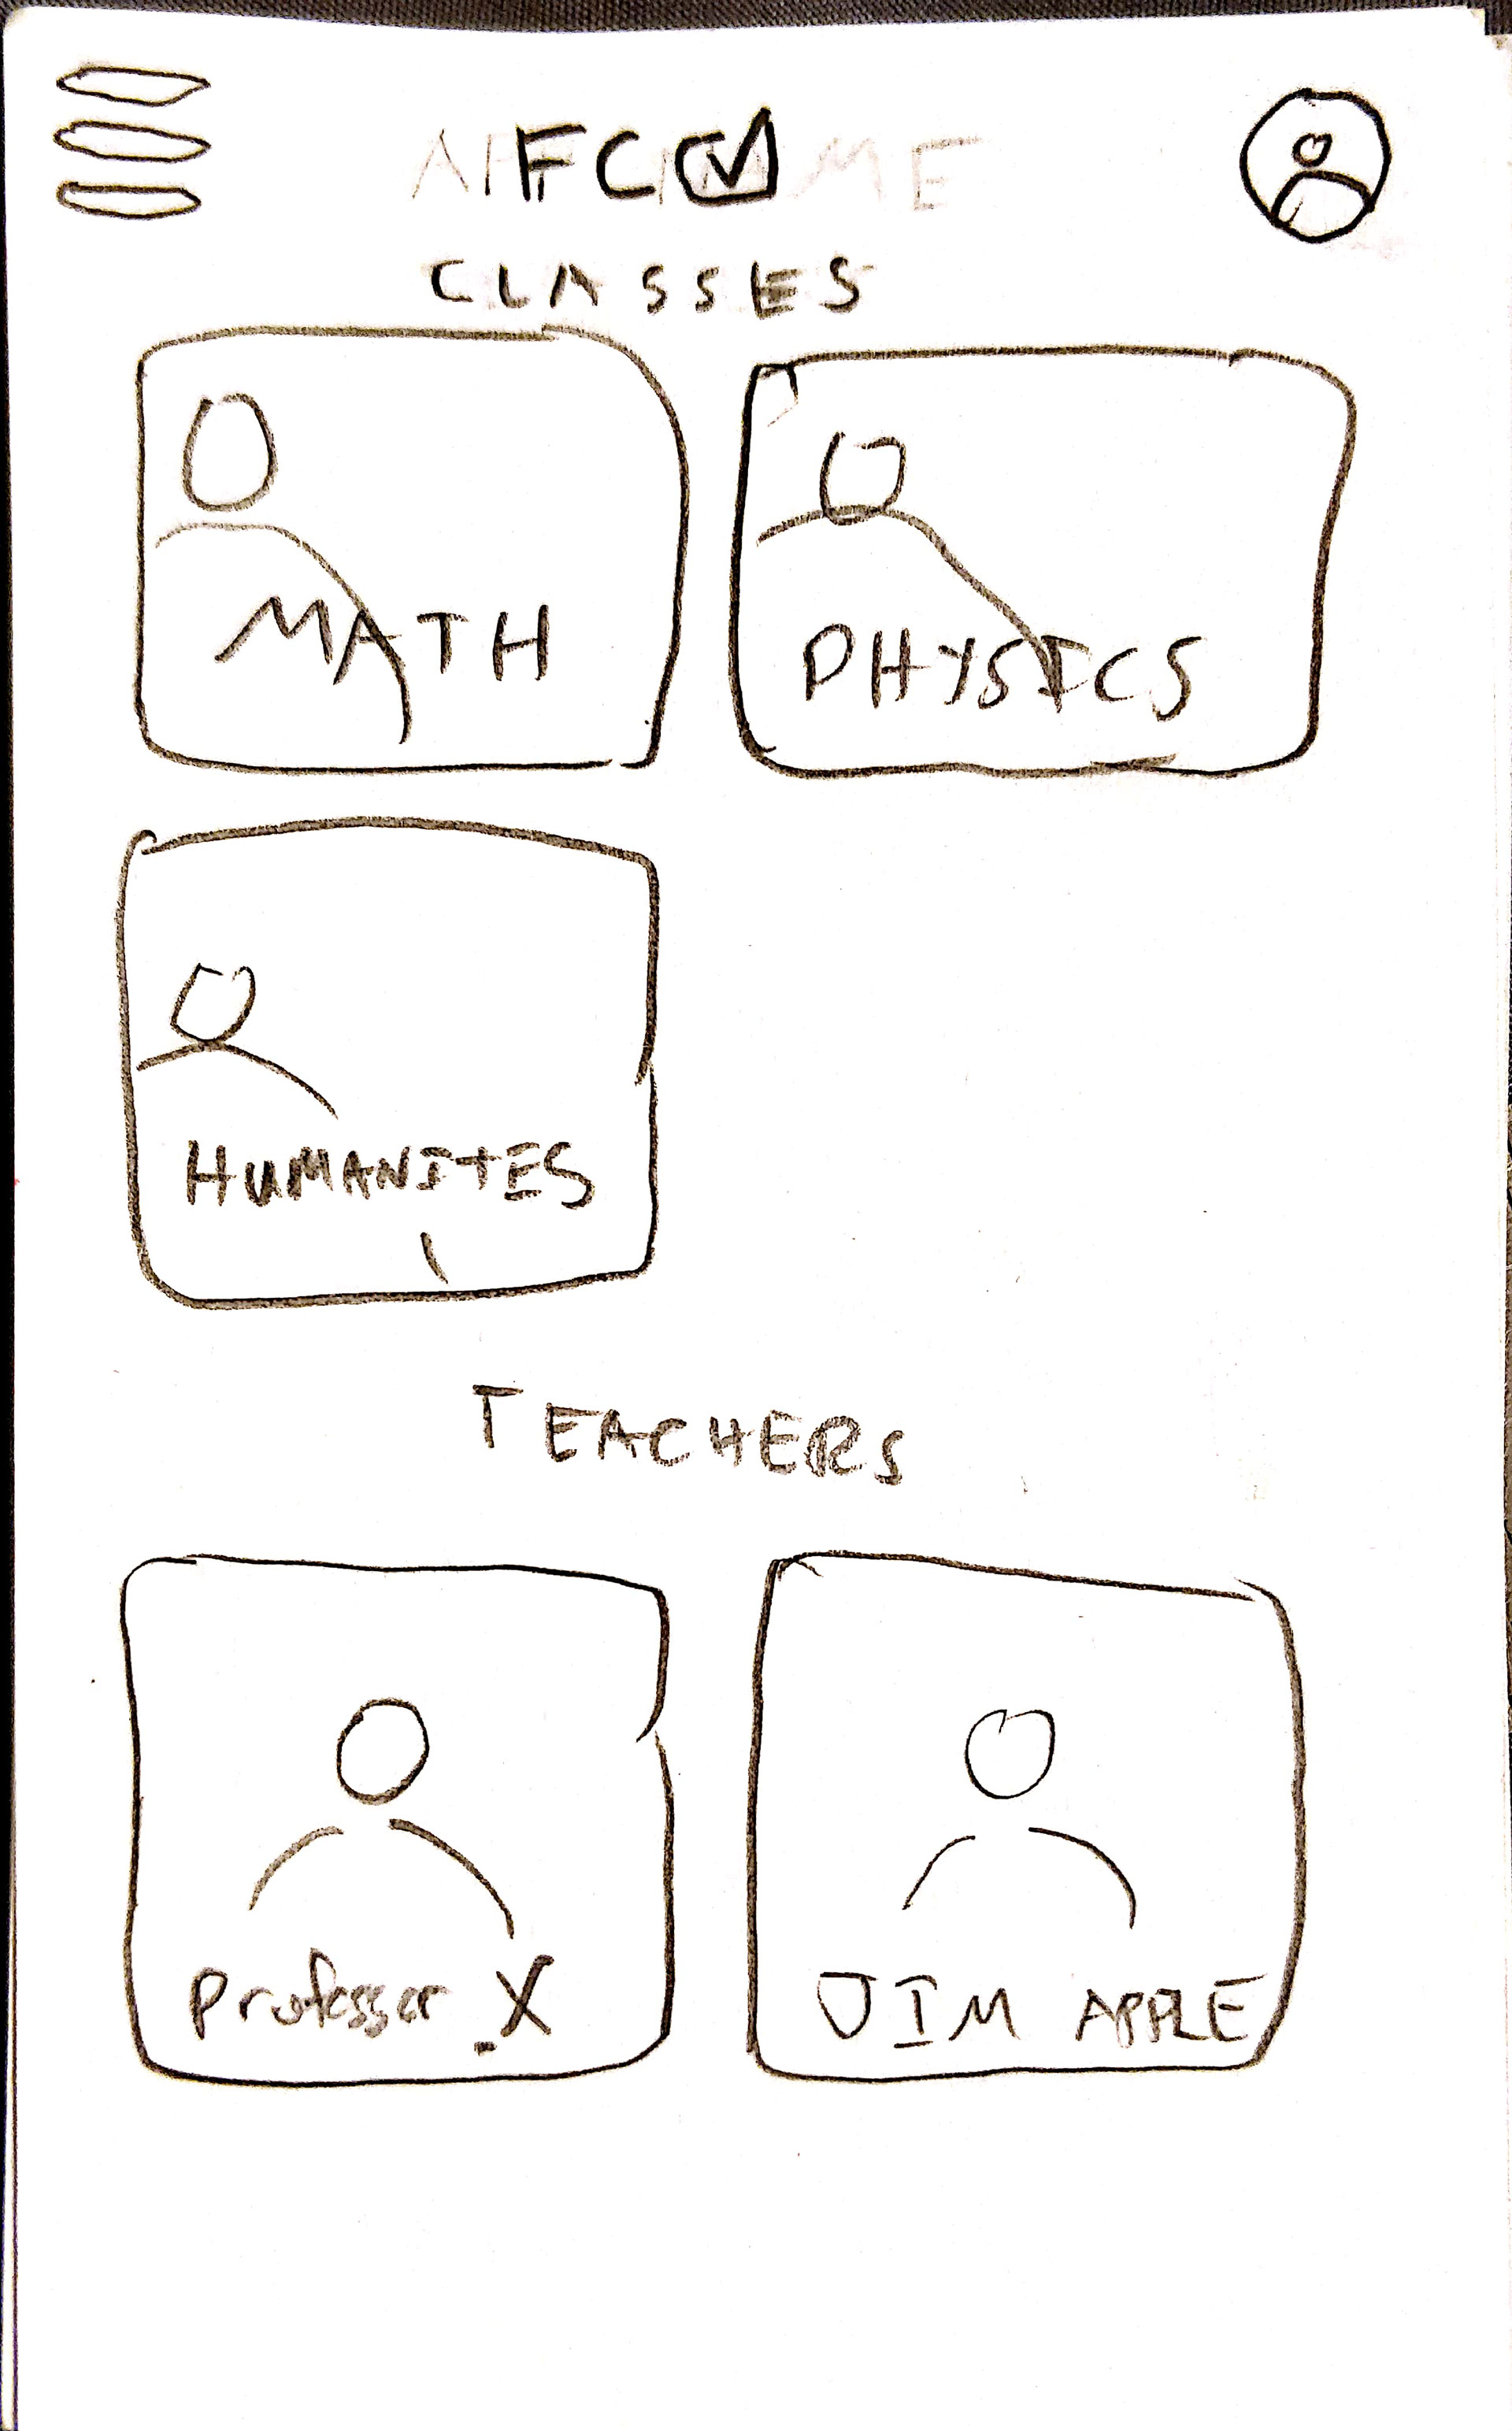 FC
CLASSES
MATH
PHYSICS
HUMANITES
TEACHERS
Professer X
JIM APPLE